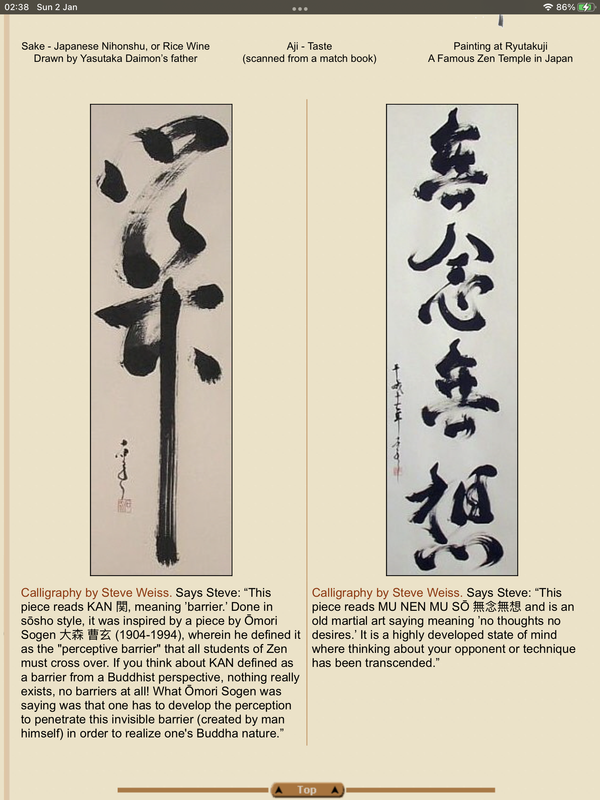 02:38 Sun 2 Jan
86%
Sake - Japanese Nihonshu, or Rice Wine
Drawn by Yasutaka Daimon's father
Aji - Taste
(scanned from a match book)
Painting at Ryutakuji
A Famous Zen Temple in Japan
関
無
念
無
想
Calligraphy by Steve Weiss. Says Steve: “This
piece reads KAN 関, meaning 'barrier.' Done in
sōsho style, it was inspired by a piece by Ōmori
Sogen 大森 曹玄 (1904-1994), wherein he defined it
as the "perceptive barrier" that all students of Zen
must cross over. If you think about KAN defined as
a barrier from a Buddhist perspective, nothing really
exists, no barriers at all! What Ōmori Sogen was
saying was that one has to develop the perception
to penetrate this invisible barrier (created by man
himself) in order to realize one's Buddha nature.”
Calligraphy by Steve Weiss. Says Steve: “This
piece reads MU NEN MU SŌ 無念無想 and is an
old martial art saying meaning 'no thoughts no
desires.' It is a highly developed state of mind
where thinking about your opponent or technique
has been transcended.”
Top